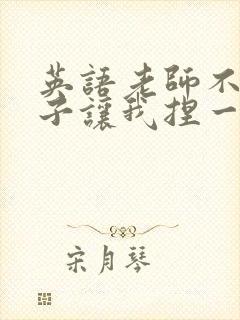 英語老師不
子讓我捏一
宋月琴